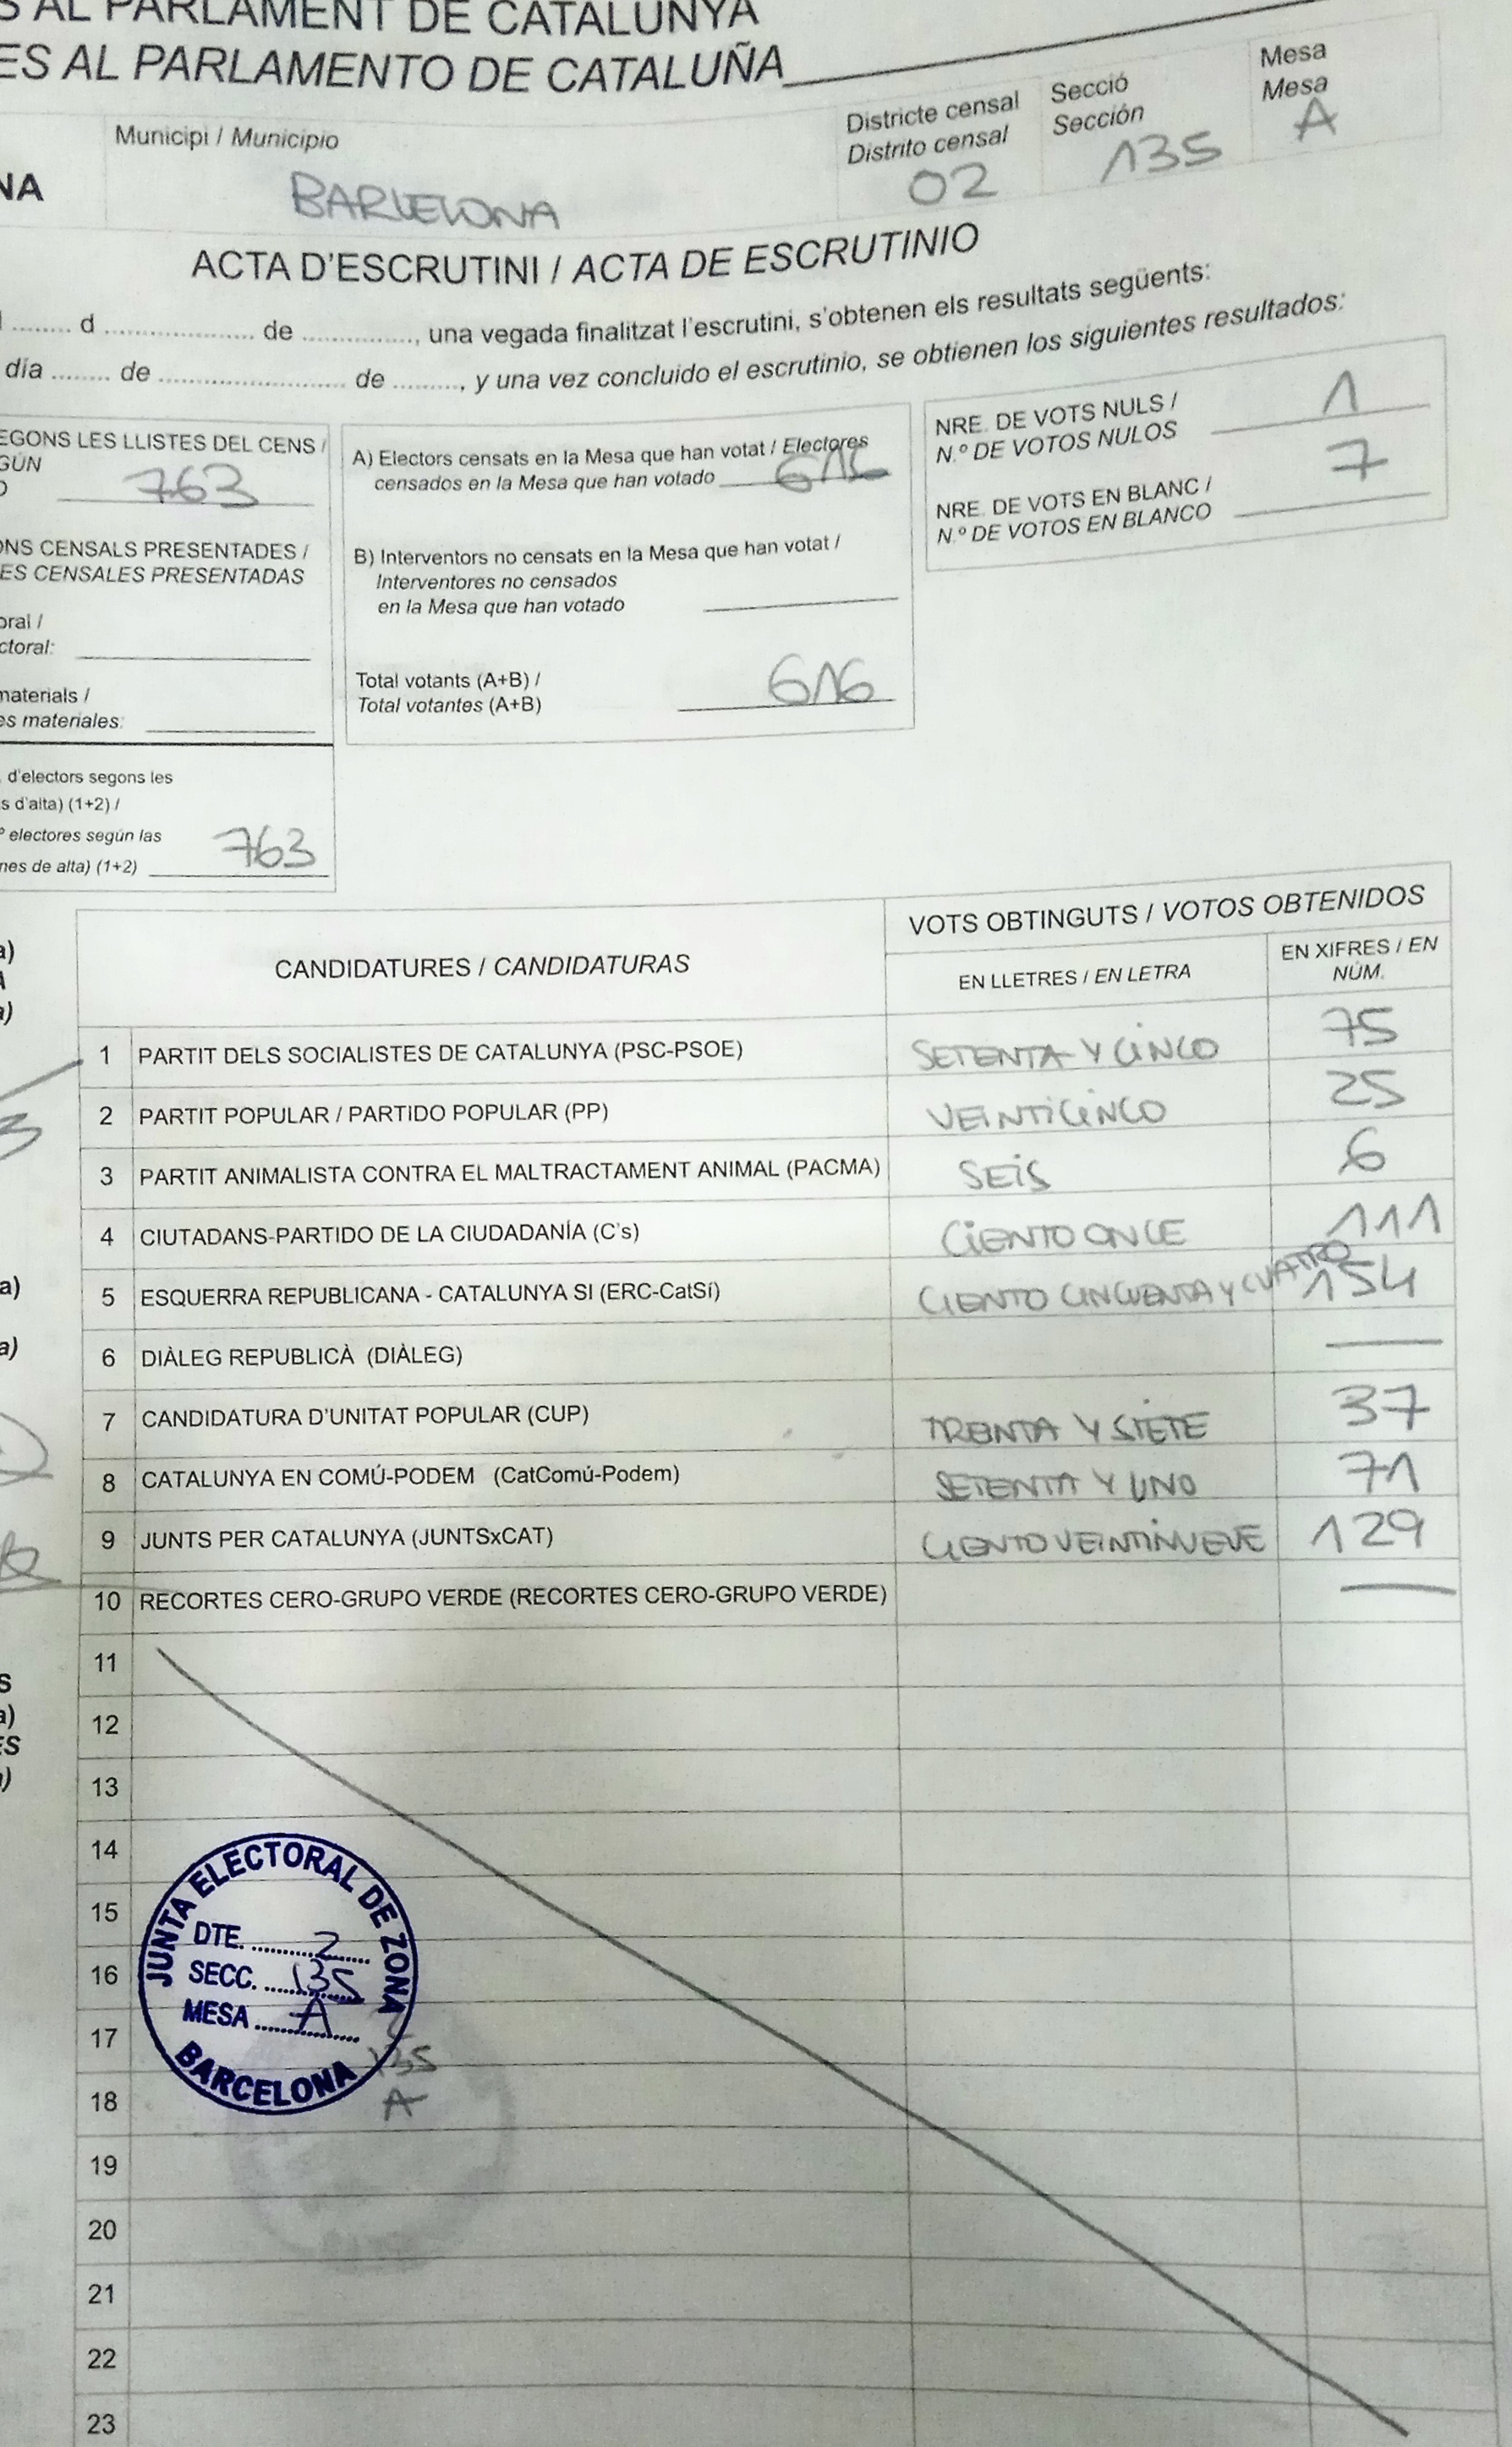 S AL PARLAMENT DE CATALUNYA
ES AL PARLAMENTO DE CATALUÑA
NA
Municipi / Municipio
BARCELONA
Districte censal
Distrito censal
02
Secció
Sección
135
Mesa
Mesa
A
ACTA D'ESCRUTINI / ACTA DE ESCRUTINIO
d de , una vegada finalitzat l'escrutini, s'obtenen els resultats següents:
día de de , y una vez concluido el escrutinio, se obtienen los siguientes resultados:
EGONS LES LLISTES DEL CENS /
GÚN
O 763
ONS CENSALS PRESENTADES /
ES CENSALES PRESENTADAS
oral /
ctoral:
materials /
es materiales:
d'electors segons les
s d'alta) (1+2) /
º electores según las
nes de alta) (1+2) 763
A) Electors censats en la Mesa que han votat / Electores
censados en la Mesa que han votado 616
B) Interventors no censats en la Mesa que han votat /
Interventores no censados
en la Mesa que han votado
Total votants (A+B) /
Total votantes (A+B) 616
NRE. DE VOTS NULS /
N.º DE VOTOS NULOS 1
NRE. DE VOTS EN BLANC /
N.º DE VOTOS EN BLANCO 7
CANDIDATURES / CANDIDATURAS
VOTS OBTINGUTS / VOTOS OBTENIDOS
EN LLETRES / EN LETRA
EN XIFRES / EN
NÚM.
1 PARTIT DELS SOCIALISTES DE CATALUNYA (PSC-PSOE) SETENTA Y CINCO 75
2 PARTIT POPULAR / PARTIDO POPULAR (PP) VEINTICINCO 25
3 PARTIT ANIMALISTA CONTRA EL MALTRACTAMENT ANIMAL (PACMA) SEIS 6
4 CIUTADANS-PARTIDO DE LA CIUDADANÍA (C's) CIENTO ONCE 111
5 ESQUERRA REPUBLICANA - CATALUNYA SI (ERC-CatSí) CIENTO CINCUENTA Y CUATRO 154
6 DIÀLEG REPUBLICÀ (DIÀLEG) —
7 CANDIDATURA D'UNITAT POPULAR (CUP) TRENTA Y SIETE 37
8 CATALUNYA EN COMÚ-PODEM (CatComú-Podem) SETENTA Y UNO 71
9 JUNTS PER CATALUNYA (JUNTSxCAT) CIENTO VEINTINUEVE 129
10 RECORTES CERO-GRUPO VERDE (RECORTES CERO-GRUPO VERDE) —
11
12
13
14
15
16
17
18
19
20
21
22
23
a)
A
a)
a)
a)
S
a)
ES
)
JUNTA ELECTORAL DE ZONA
DTE. 2
SECC. 135
MESA A
BARCELONA
135
A